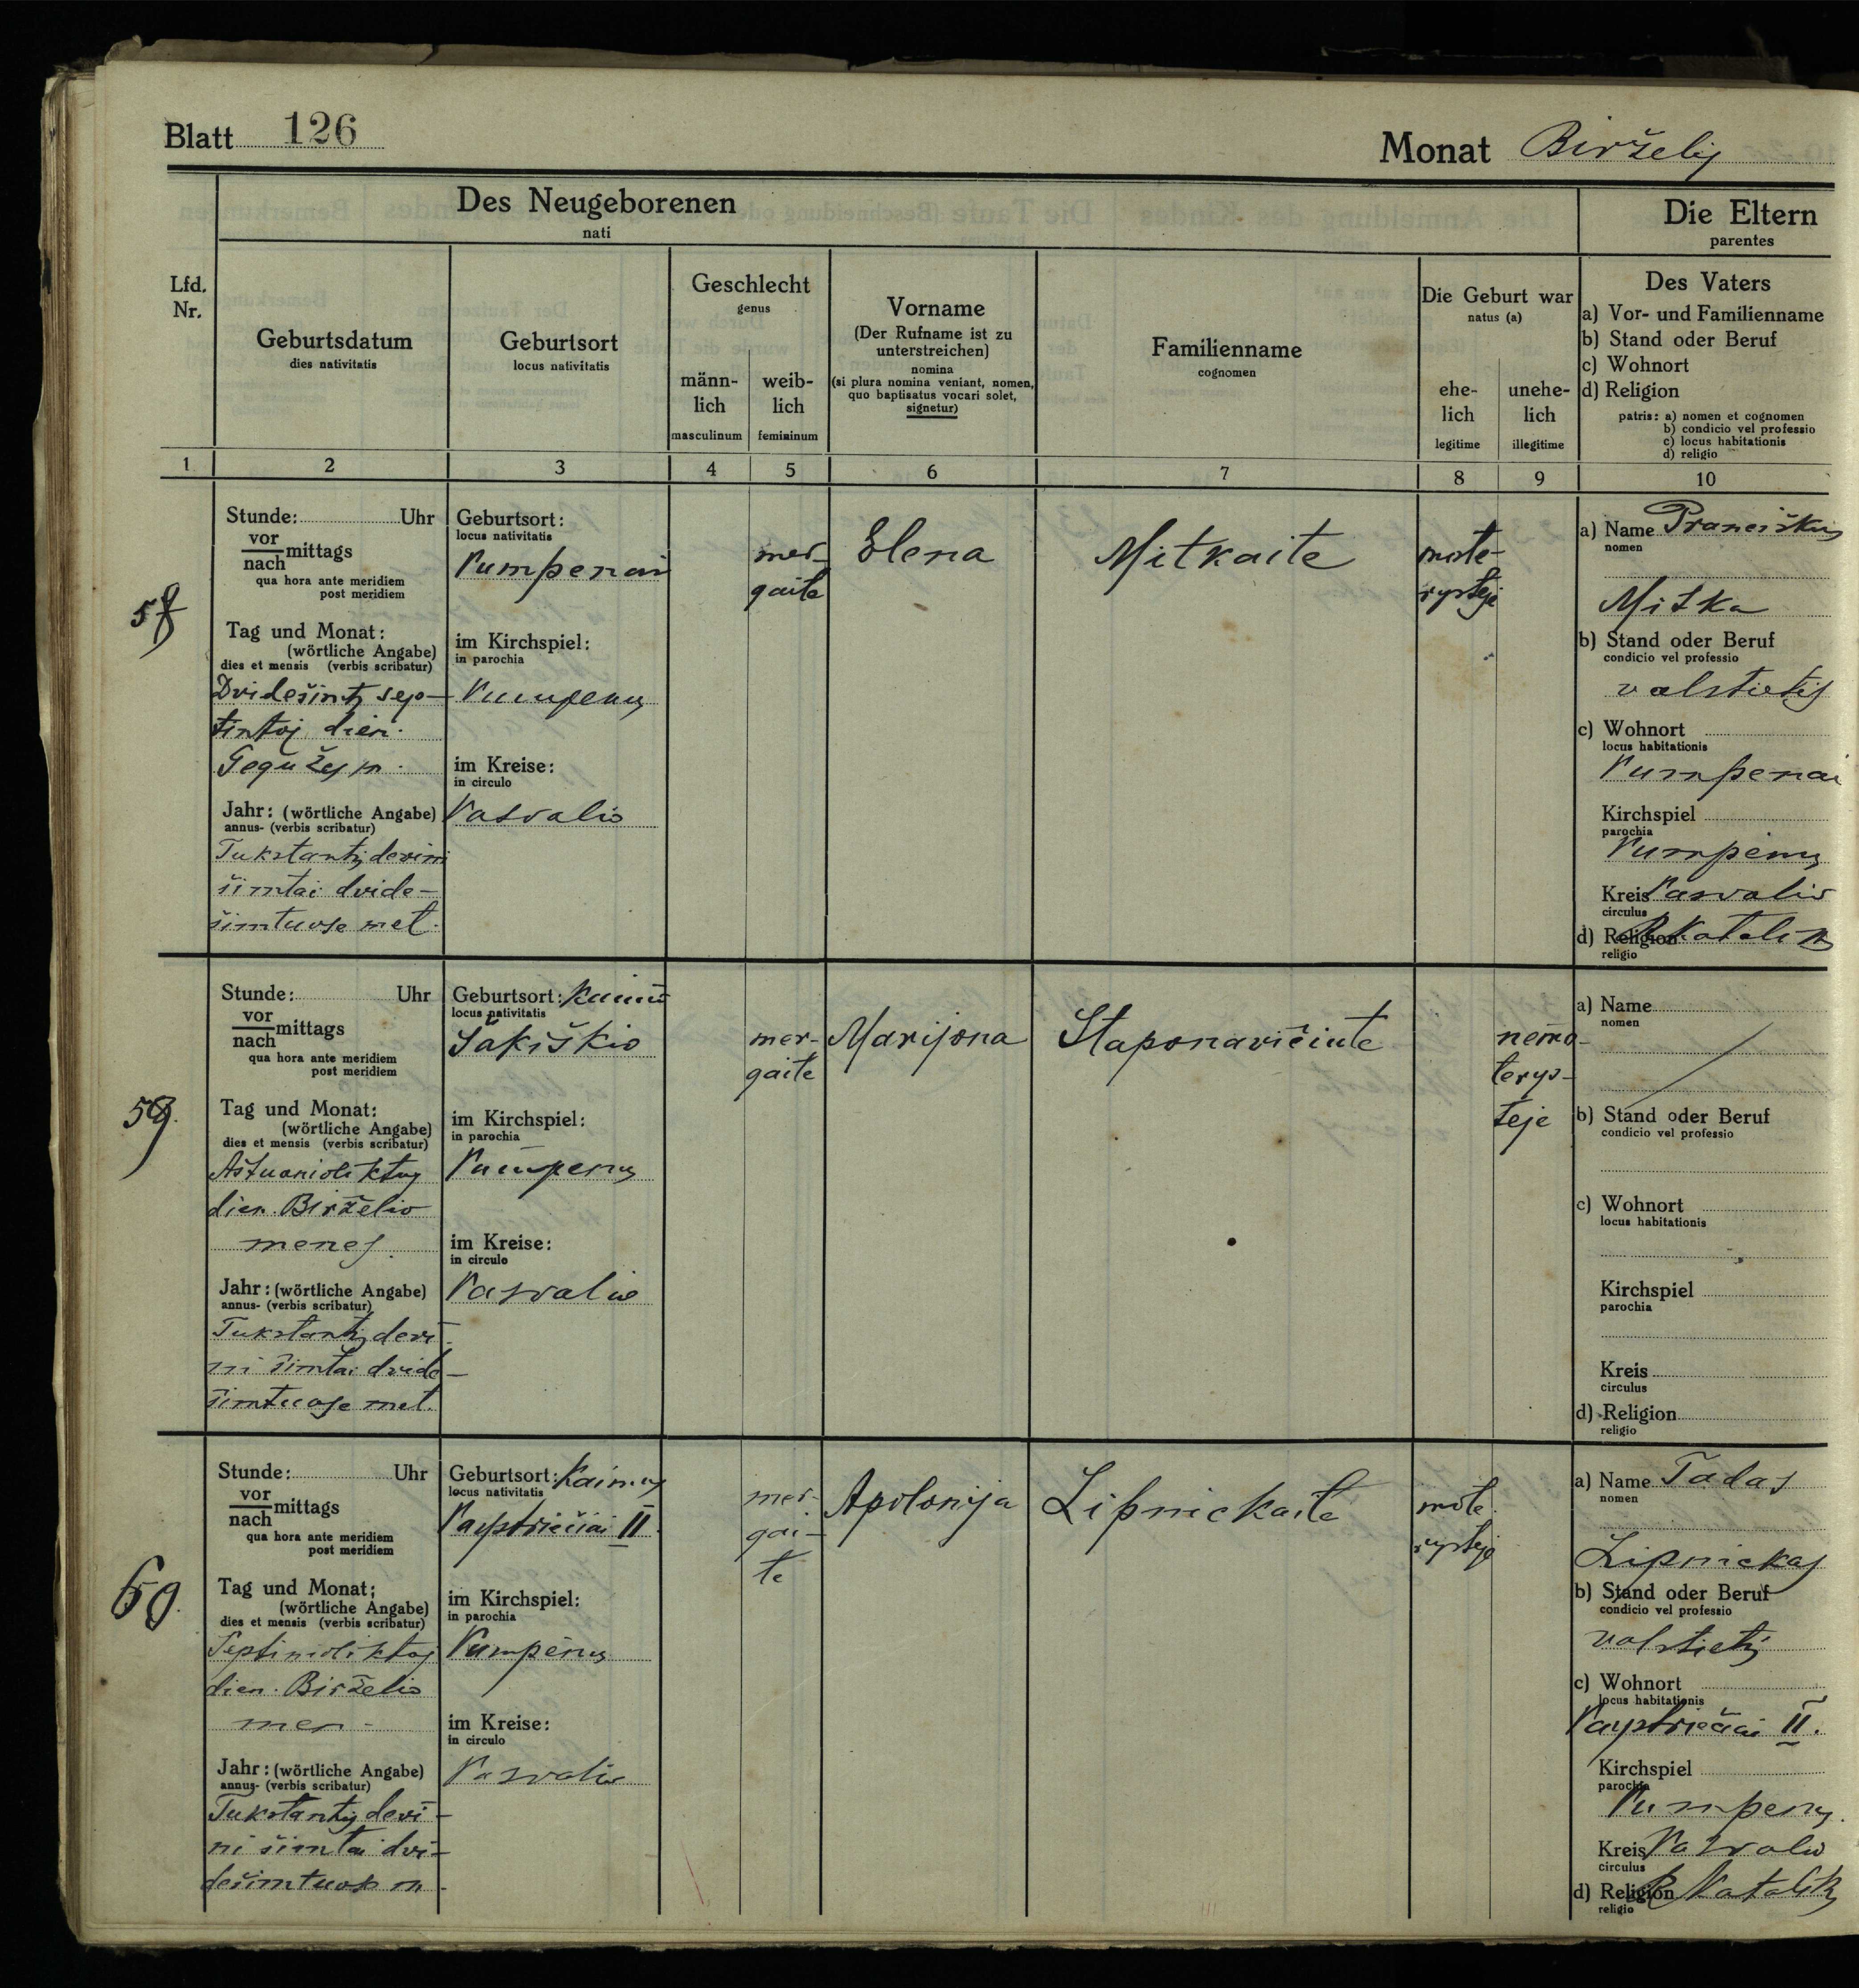 Blatt 126
Monat Birželis
Des Neugeborenen
nati
Die Eltern
parentes
Lfd.
Nr.
Geburtsdatum
dies nativitatis
Geburtsort
locus nativitatis
Geschlecht
genus
männ-
lich
masculinum
weib-
lich
femininum
Vorname
(Der Rufname ist zu
unterstreichen)
nomina
(si plura nomina veniant, nomen,
quo baptisatus vocari solet,
signetur)
Familienname
cognomen
Die Geburt war
natus (a)
ehe-
lich
legitime
unehe-
lich
illegitime
Des Vaters
a) Vor- und Familienname
b) Stand oder Beruf
c) Wohnort
d) Religion
patris: a) nomen et cognomen
b) condicio vel professio
c) locus habitationis
d) religio
1 2 3 4 5 6 7 8 9 10
58
Stunde: Uhr
vor
nach mittags
qua hora ante meridiem
post meridiem
Tag und Monat:
(wörtliche Angabe)
dies et mensis (verbis scribatur)
Dvidešimtį sep-
tintoj dien.
Gegužės m.
Jahr: (wörtliche Angabe)
annus- (verbis scribatur)
Tukstantį devini
šimtai dvide-
šimtuose met.
Geburtsort:
locus nativitatis
Pumpenai
im Kirchspiel:
in parochia
Pumpenų
im Kreise:
in circulo
Pasvalio
mer-
gaite
Elena
Mitkaite
mote-
rysteje
a) Name Pranciškus
nomen
Mitka
b) Stand oder Beruf
condicio vel professio
valstietis
c) Wohnort
locus habitationis
Pumpenai
Kirchspiel
parochia
Pumpenų
Kreis Pasvalio
circulus
d) Religion R Katalikų
religio
59.
Stunde: Uhr
vor
nach mittags
qua hora ante meridiem
post meridiem
Tag und Monat:
(wörtliche Angabe)
dies et mensis (verbis scribatur)
Aštuonioliktoj
dien. Birželio
menes.
Jahr: (wörtliche Angabe)
annus- (verbis scribatur)
Tukstantį devi-
ni šimtai dvide-
šimtuose met.
Geburtsort: Kaimo
locus nativitatis
Šakiškio
im Kirchspiel:
in parochia
Pumpenų
im Kreise:
in circulo
Pasvalio
mer-
gaite
Marijona
Staponavičiute
nemo-
terys-
teje
a) Name
nomen
b) Stand oder Beruf
condicio vel professio
c) Wohnort
locus habitationis
Kirchspiel
parochia
Kreis
circulus
d) Religion
religio
60.
Stunde: Uhr
vor
nach mittags
qua hora ante meridiem
post meridiem
Tag und Monat:
(wörtliche Angabe)
dies et mensis (verbis scribatur)
Septinioliktoj
dien. Birželio
men.
Jahr: (wörtliche Angabe)
annus- (verbis scribatur)
Tukstantį devi-
ni šimtai dvi-
dešimtuose m.
Geburtsort: Kaimas
locus nativitatis
Paystriečiai II.
im Kirchspiel:
in parochia
Pumpėnų
im Kreise:
in circulo
Pasvalio
mer-
gai-
te
Apolonija
Lipnickaite
mote-
rysteje
a) Name Tadas
nomen
Lipnickas
b) Stand oder Beruf
condicio vel professio
valstietis
c) Wohnort
locus habitationis
Paystriečiai II.
Kirchspiel
parochia
Pumpenų.
Kreis Pasvalio
circulus
d) Religion R Katalikų
religio